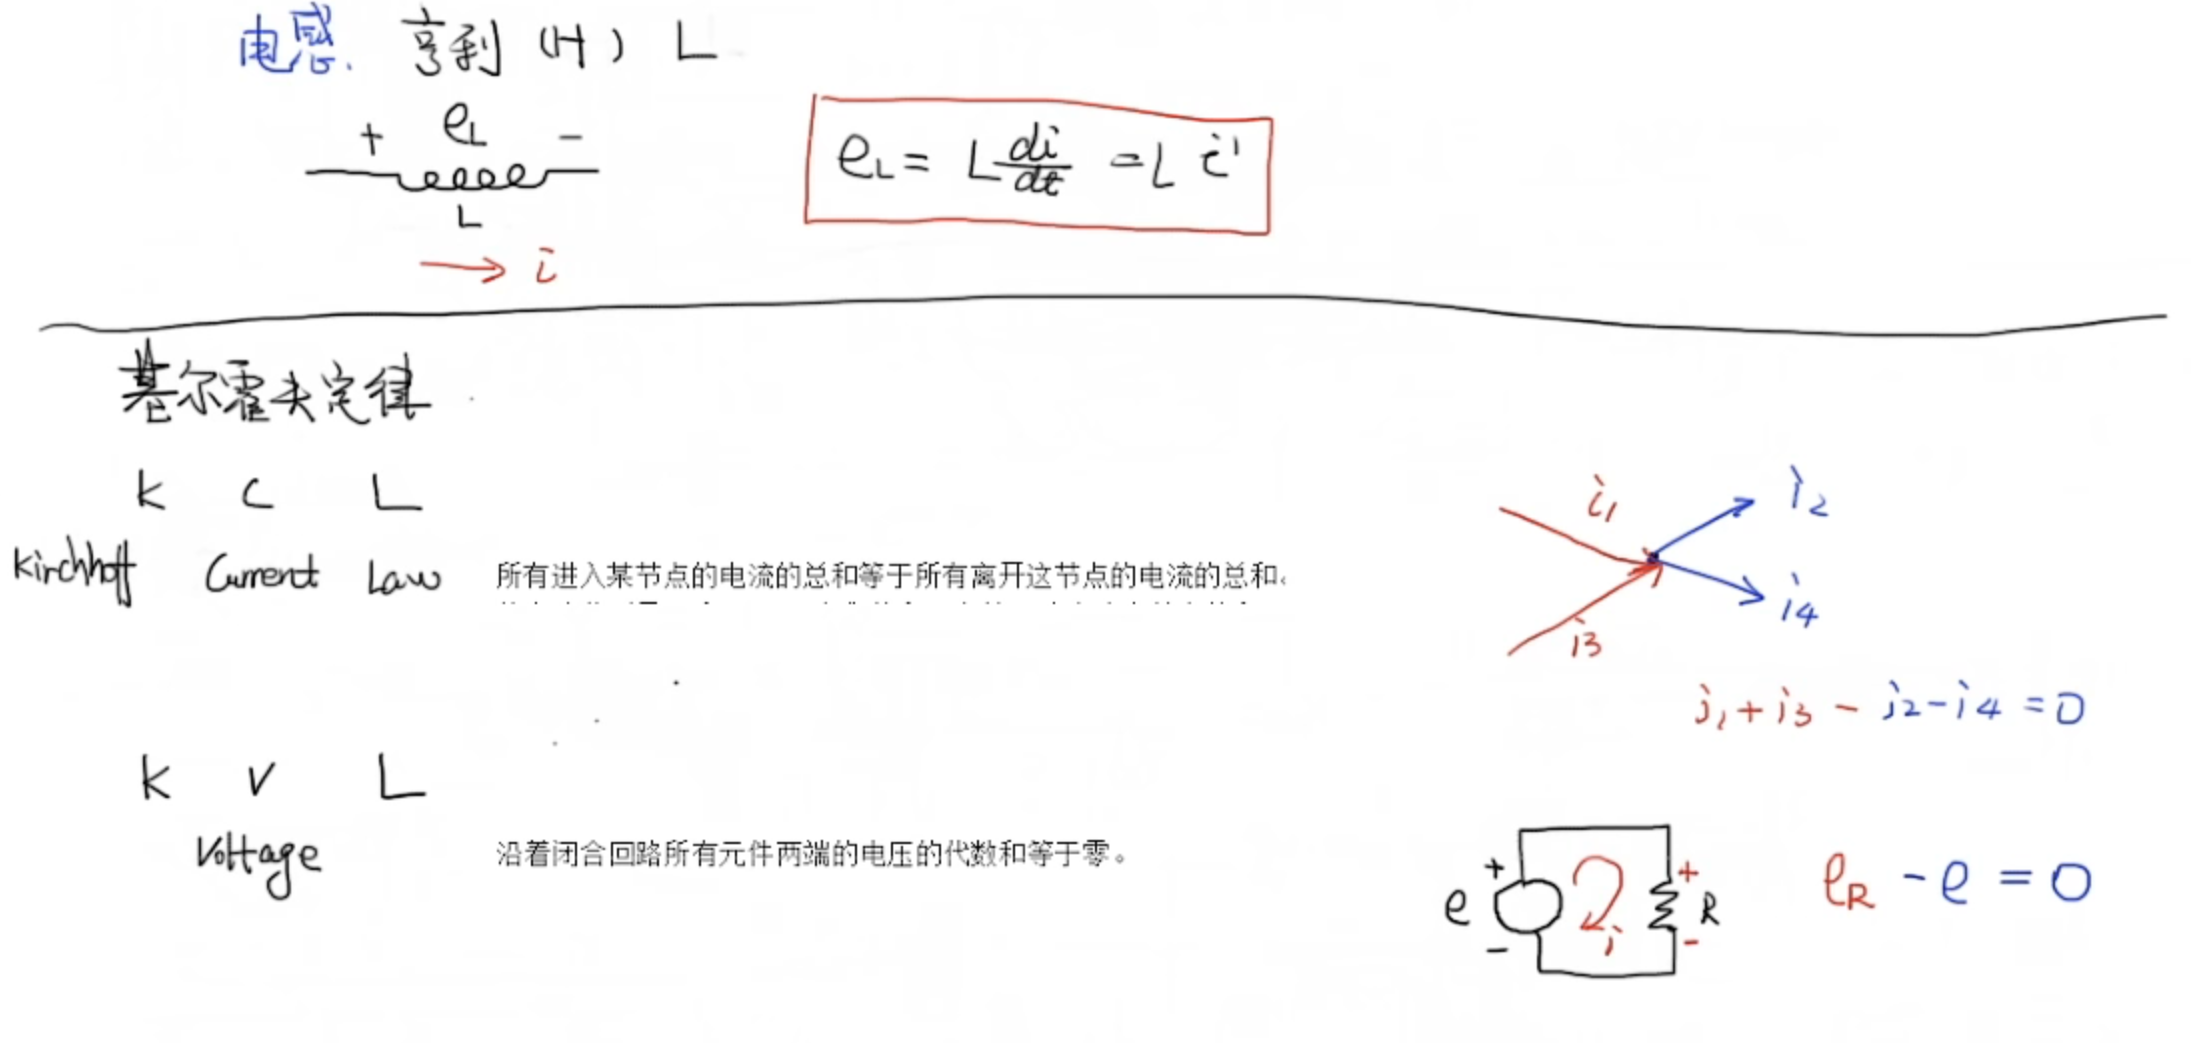 电感. 亨利 (H) L
+ eL -
L
→ i
eL = L di/dt = L i'
基尔霍夫定律
K C L
Kirchhoff Current Law 所有进入某节点的电流的总和等于所有离开这节点的电流的总和。
i1 i2
i3 i4
i1 + i3 - i2 - i4 = 0
K V L
Voltage 沿着闭合回路所有元件两端的电压的代数和等于零。
+ +
e i R
- -
eR - e = 0